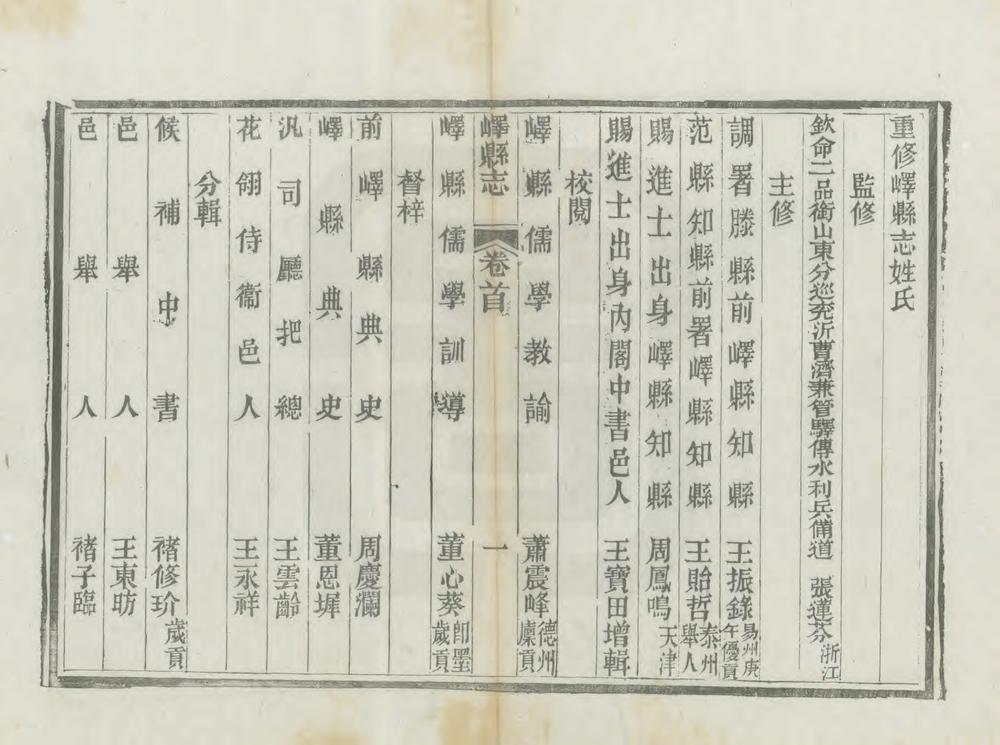 重修嶧縣志姓氏
監修
欽命二品銜山東分巡兖沂曹濟兼管驛傳水利兵備道 張蓮芬 浙江
主修
調署滕縣前嶧縣知縣 王振錄 易州庚午優貢
范縣知縣前署嶧縣知縣 王貽哲 泰州舉人
賜進士出身嶧縣知縣 周鳳鳴 天津
賜進士出身內閣中書邑人 王寶田增輯
校閱
嶧縣儒學教諭 蕭震峰 德州廩貢
嶧縣志 卷首 一
嶧縣儒學訓導 董心葵 卽墨歲貢
督梓
前嶧縣典史 周慶瀾
嶧縣典史 董恩墀
汛司廳把總 王雲齡
花翎侍衞邑人 王永祥
分輯
候補中書 褚修玠 歲貢
邑舉人 王東昉
邑舉人 褚子臨